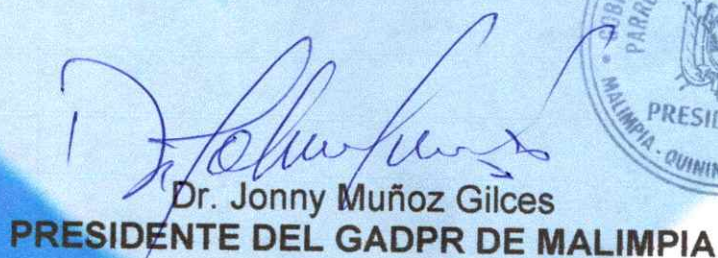 Dr. Jonny Muñoz Gilces
PRESIDENTE DEL GADPR DE MALIMPIA
MALIMPIA